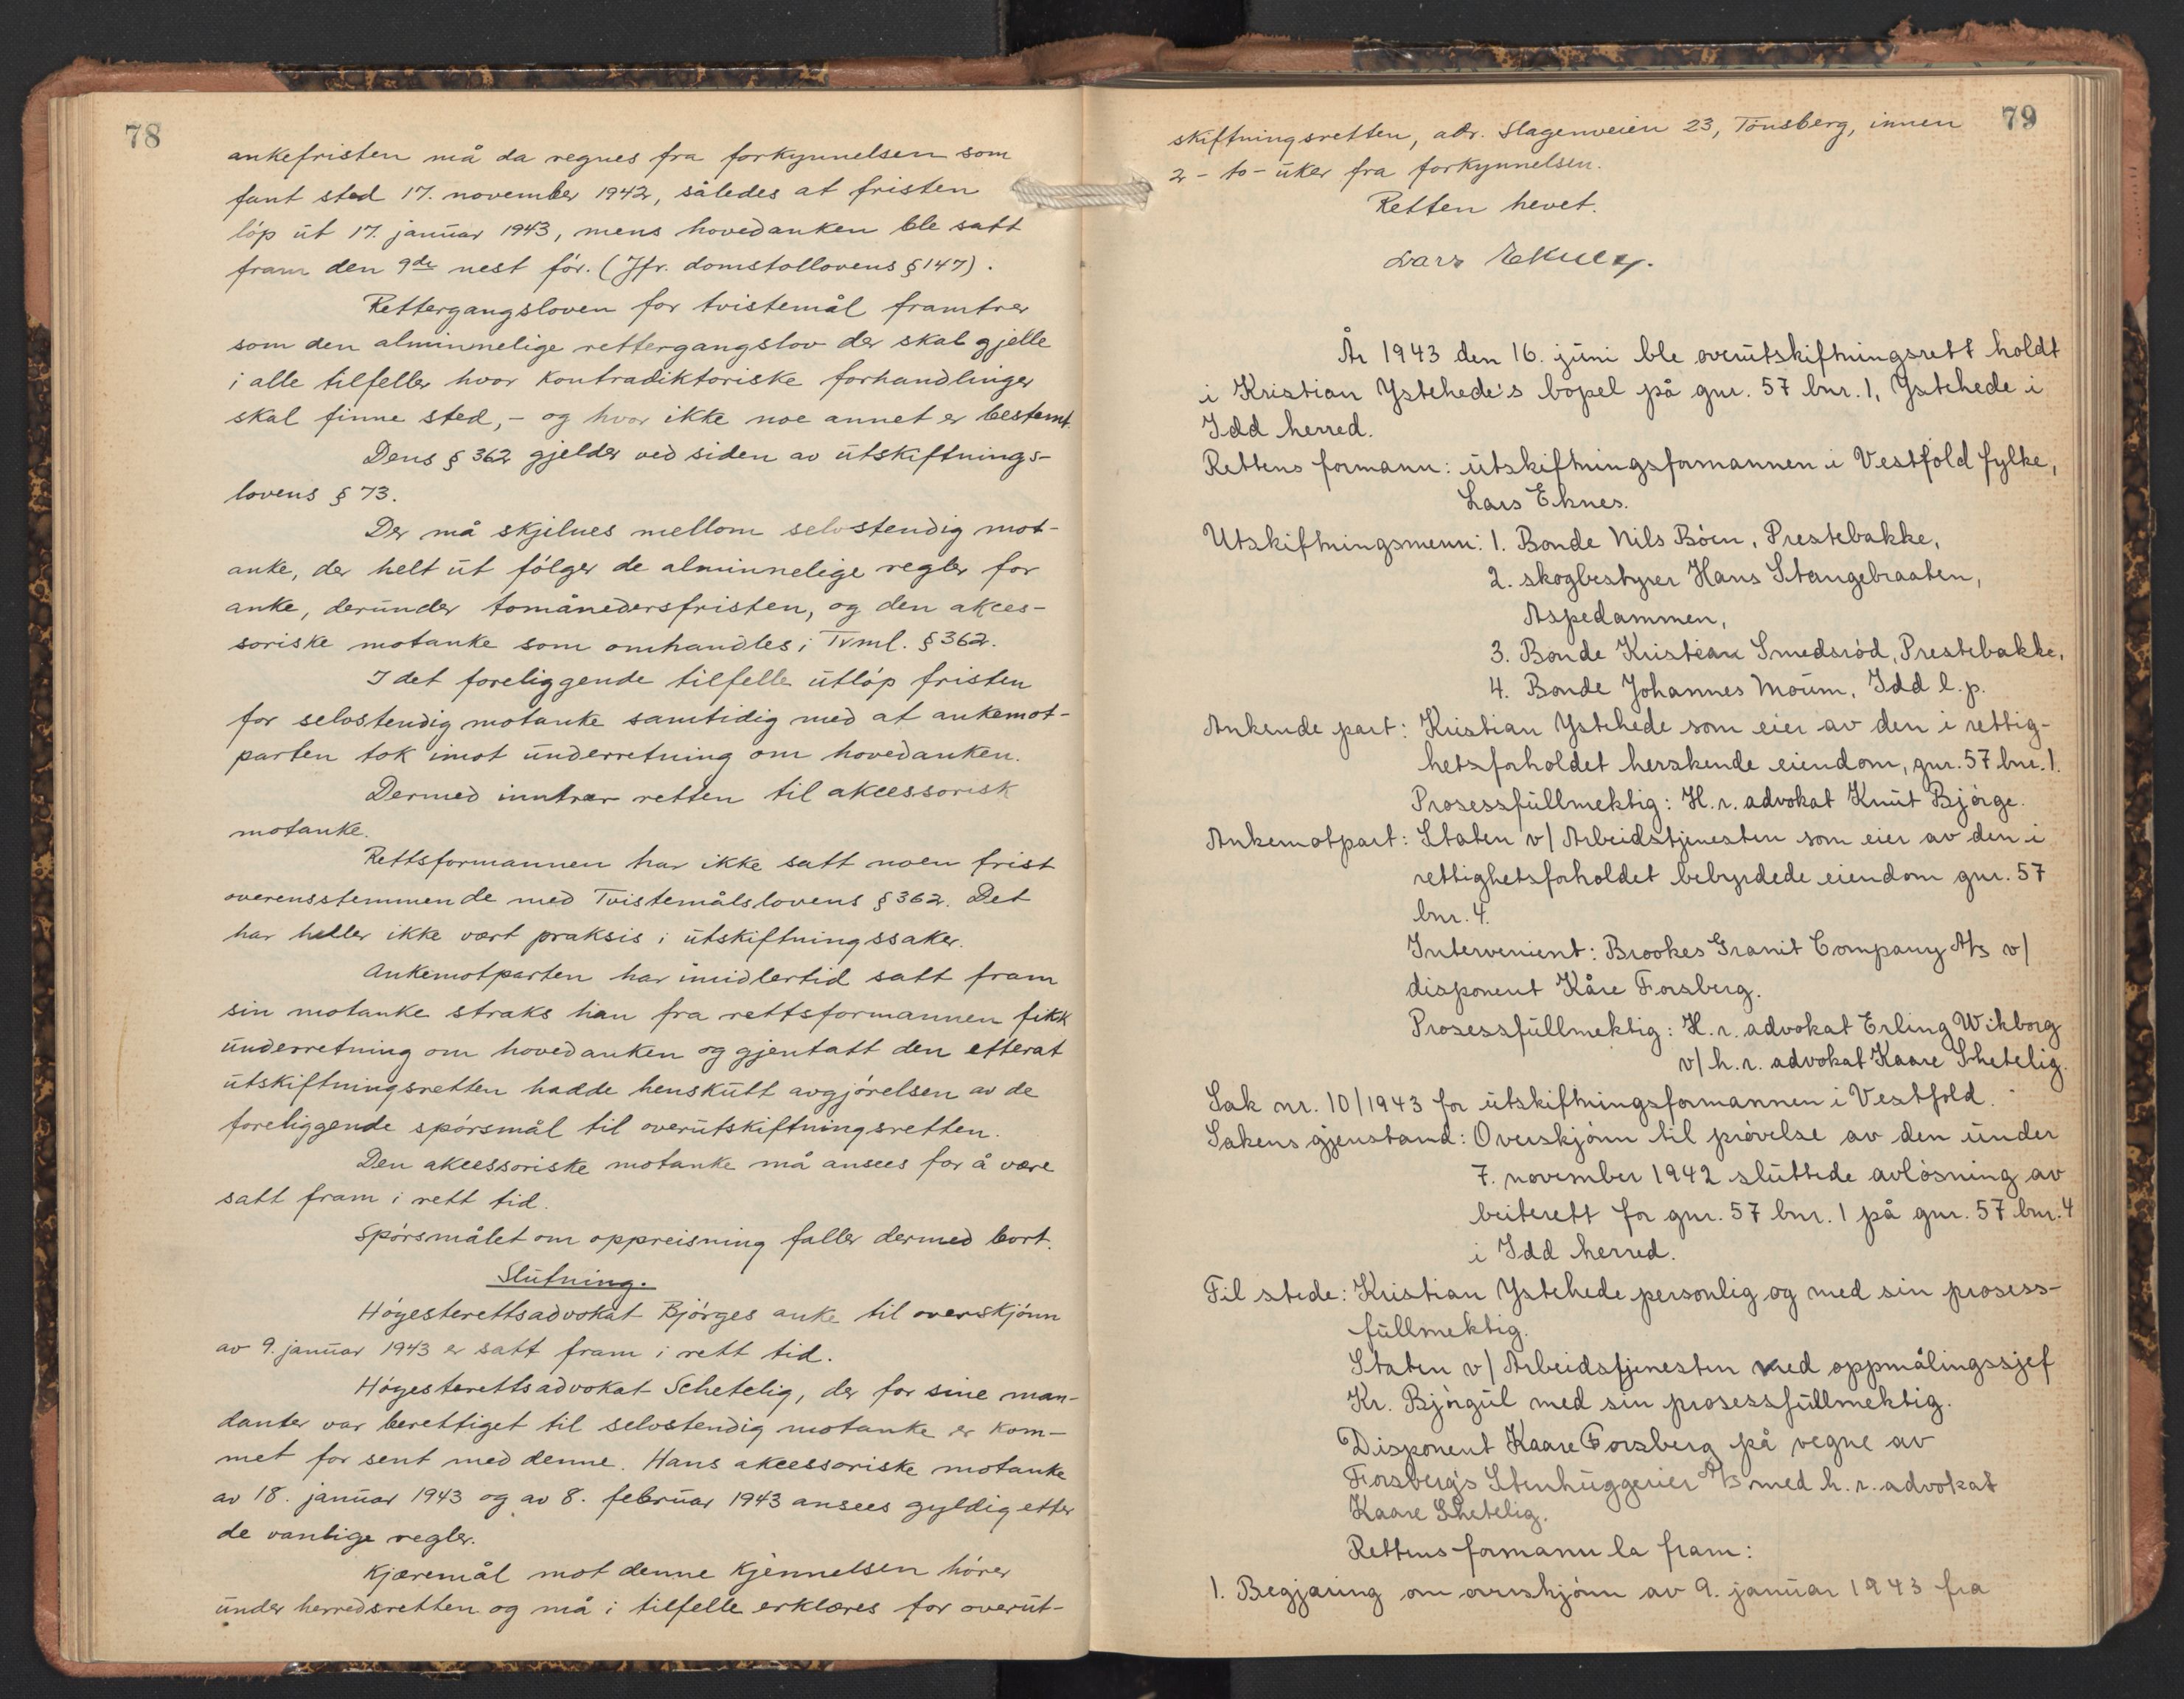 78
ankefristen må da regnes fra forkynnelsen som
fant sted 17. november 1942, således at fristen
löp út 17. janúar 1943, mens hovedanken ble satt
fram den 9de nest för. (Jfr. domstollovens § 147).
Rettergangsloven for tvistemål framtrer
som den alminnelige rettergangslov der skal gjelle
i alle tilfeller hvor kontradiktoriske forhandlinger
skal finne sted, - og hvor ikke noe annet er bestemt.
Dens § 362 gjelder ved siden av útskiftnings-
lovens § 73.
Der må skjelnes mellom selvstendig mot-
anke, der helt út fölger de alminnelige regler for
anke, derúnder tomånedersfristen, og den akces-
soriske motanke som omhandles i Tvml. § 362.
I det foreliggende tilfelle útlöp fristen
for selvstendig motanke samtidig med at ankemot-
parten tok imot únderretning om hovedanken.
Dermed inntrer retten til akcessorisk
motanke.
Rettsformannen har ikke satt noen frist
overensstemmende med Tvistemålslovens § 362. Det
har heller ikke vært praksis i útskiftningssaker.
Ankemotparten har imidlertid satt fram
sin motanke straks han fra rettsformannen fikk
únderretning om hovedanken og gjentatt den etterat
útskiftningsretten hadde henskútt avgjörelsen av de
foreliggende spörsmål til overútskiftningsretten.
Den akcessoriske motanke må ansees for å være
satt fram i rett tid.
Spörsmålet om oppreisning faller dermed bort.
Slútning.
Höyesterettsadvokat Björges anke til overskjönn
av 9. janúar 1943 er satt fram i rett tid.
Höyesterettsadvokat Schetelig, der for sine man-
danter var berettiget til selvstendig motanke er kom-
met for sent med denne. Hans akcessoriske motanke
av 18. janúar 1943 og av 8. febrúar 1943 ansees gyldig etter
de vanlige regler.
Kjæremål mot denne kjennelsen hörer
únder herredsretten og må i tilfelle erklæres for overút-
79
skiftningsretten, adr. Slagenveien 23, Tönsberg, innen
2 - to - úker fra forkynnelsen.
Retten hevet.
Lars Eknes.
År 1943 den 16. júni ble overútskiftningsrett holdt
i Kristian Ystehede's bopel på gnr. 57 bnr. 1, Ystehede i
Idd herred.
Rettens formann: útskiftningsformannen i Vestfold fylke,
Lars Eknes.
Utskiftningsmenn: 1. Bonde Nils Böen, Prestebakke,
2. skogbestyrer Hans Stangebraaten,
Aspedammen,
3. Bonde Kristian Smedsröd, Prestebakke,
4. Bonde Johannes Moúm, Idd l.p.
Ankende part: Kristian Ystehede som eier av den i rettig-
hetsforholdet herskende eiendom, gnr. 57 bnr. 1.
Prosessfúllmektig: H.r. advokat Knút Bjørge.
Ankemotpart: Staten v/ Arbeidstjenesten som eier av den i
rettighetsforholdet bebyrdede eiendom gnr. 57
bnr. 4.
Intervenient: Brookes Granit Company A/s v/
disponent Kåre Forsberg.
Prosessfúllmektig: H.r. advokat Erling Wikborg
v/ h.r. advokat Kaare Shetelig.
Sak nr. 10/1943 for útskiftningsformannen i Vestfold.
Sakens gjenstand: Overskjönn til prövelse av den únder
7. november 1942 slúttede avlösning av
beiterett for gnr. 57 bnr. 1 på gnr. 57 bnr. 4
i Idd herred.
Til stede: Kristian Ystehede personlig og med sin prosess-
fúllmektig.
Staten v/ Arbeidstjenesten ved oppmålingssjef
Kr. Bjørgúl med sin prosessfúllmektig.
Disponent Kaare Forsberg på vegne av
Forsberg's Stenhúggerier A/s med h.r. advokat
Kaare Shetelig.
Rettens formann la fram:
1. Begjæring om overskjönn av 9. janúar 1943 fra